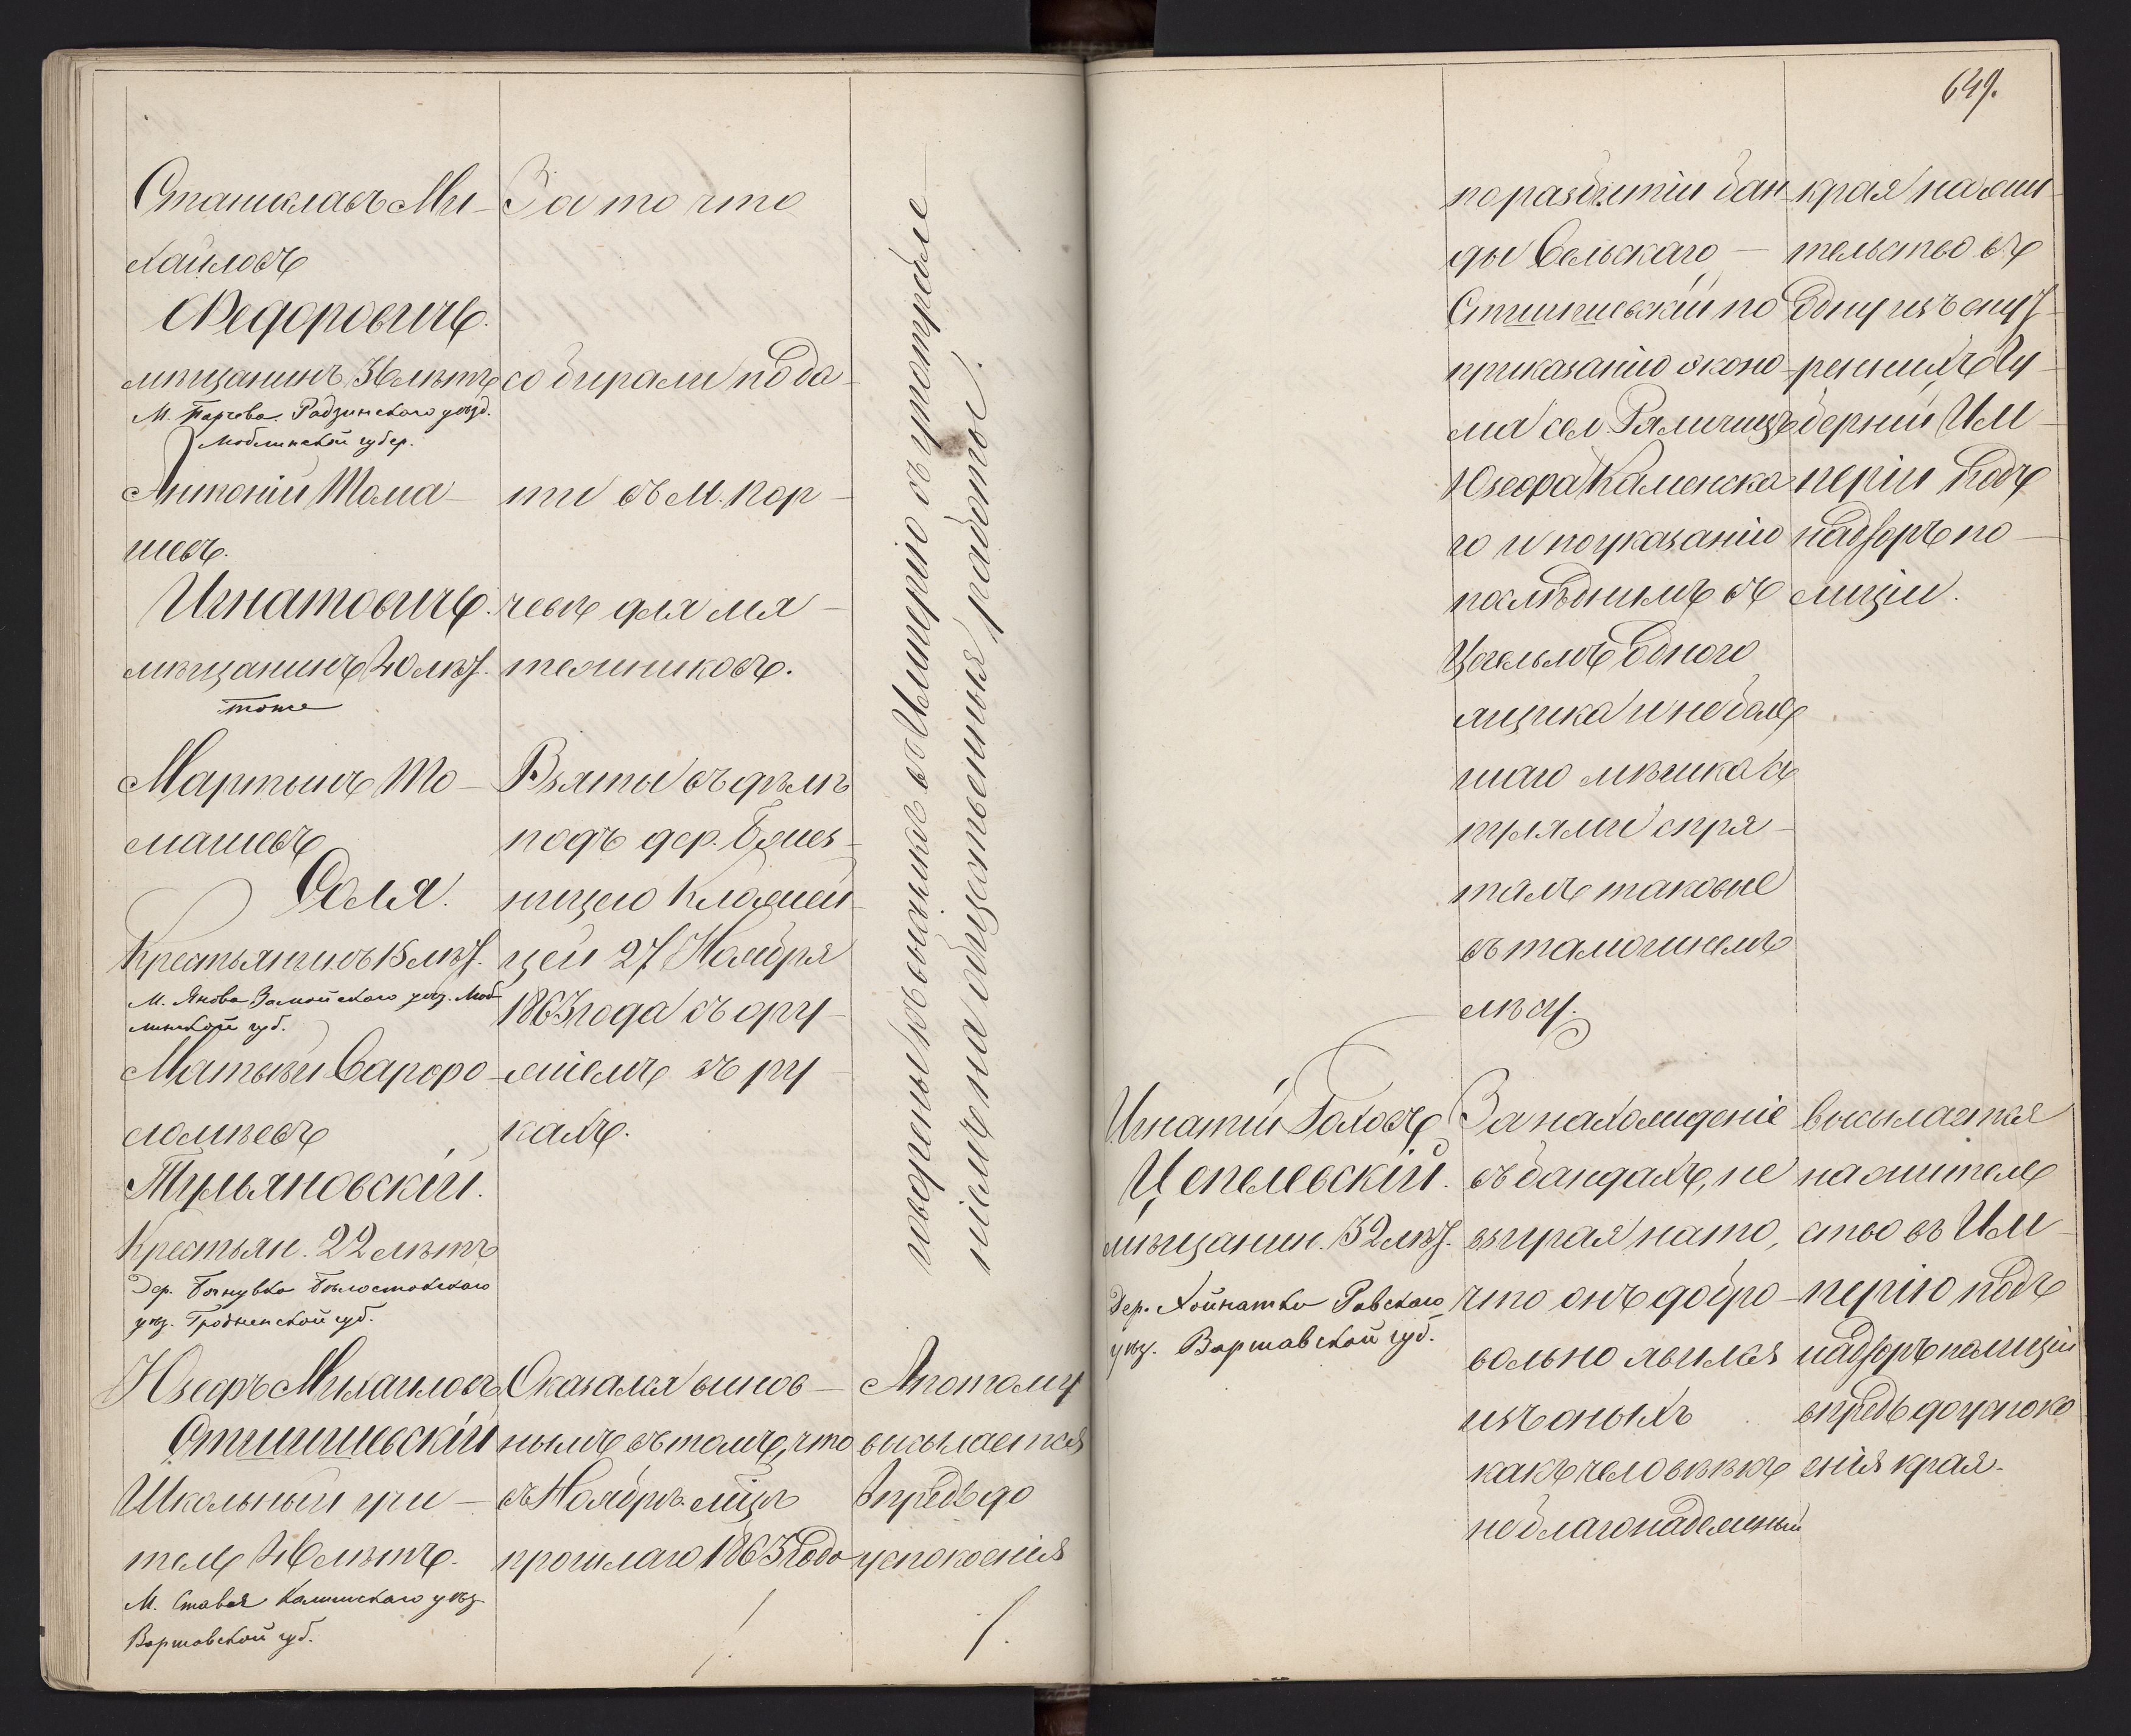 Станиславъ Ми-
хайловъ
Федоровичъ.
мѣщанинъ 36 лѣтъ
М. Парчева Радзинскаго уѣзд.
Люблинской губер.
Антоній Тома-
шевъ.
Игнатовичъ.
мѣщанинъ 40 лѣт.
тоже
Мартынъ То-
машевъ
Соля.
Крестьянинъ 15 лѣт.
М. Янова Замойскаго уѣз. Люб-
линской губ.
Матвѣй Варфоро-
ломѣевъ
Тульяновскій.
Крестьян. 22 лѣтъ
Дер. Бѣлостокскаго
уѣз. Гродненской губ.
Юзефъ Михайловъ
Стшишевскій
Школьный учи-
тель 46 лѣтъ.
М. Ставъ Калишскаго уѣз.
Варшавской губ.
За то что
собирали пода-
ти въ М. Пар-
чевѣ для мя-
тежниковъ.
Взяты въ дѣлѣ
подъ дер.
27 Ноября
1863 года съ ору-
жіемъ въ ру-
кахъ.
Оказался винов-
нымъ въ томъ, что
въ Ноябрѣ мѣцѣ
прошлаго 1863 года
водворены къ высылкѣ въ Имперію съ употребле-
ніемъ на общественныя работы.
А потому
высылается
впредь до
успокоенія
649.
по разбитіи бан-
ды Сельскаго
Стшишевскій по
приказанію эконо-
ма сел.
Юзефа Каменска-
го и по указанію
послѣднимъ въ
одного
ящика и неболь-
шаго мѣшка съ
пулями спря-
талъ таковые
въ тамошнемъ
лѣсу.
края на жи-
тельство въ
одну изъ внут-
реннихъ Гу-
берній Им-
періи подъ
надзоръ по-
лиціи.
Игнатій Голобъ
Цепелевскій.
мѣщанин. 32 лѣт.
Дер. Хойнатки Равскаго
уѣз. Варшавской губ.
За нахожденіе
въ бандахъ, не
взирая на то,
что онъ добро-
вольно явился
изъ оныхъ
какъ человѣкъ
неблагонадежный
высылается
на житель-
ство въ Им-
перію подъ
надзоръ полиціи
впредь до успоко-
енія края.